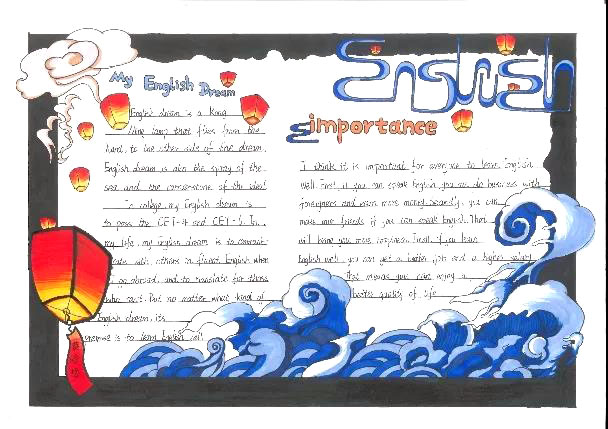 My English Dream
English dream is a Kong
ming lamp that flies from the
hand, to the other side of the dream.
English dream is also the spray of the
sea and the cornerstone of the ideal
In college, my English dream is
to pass the CET-4 and CET-6. In
my life, my English dream is to communi-
cate with others in fluent English when
I go abroad, and to translate for those
who can't. But no matter what kind of
English dream, its
premise is to learn English well
English
importance
I think it is important for everyone to learn English
well. First, if you can speak English, you can do business with
foreigners and earn more money. Secondly, you can
make more friends if you can speak English. That
will bring you more happiness. Finally, if you learn
English well, you can get a better job and a higher salary
that means you can enjoy a
better quality of life